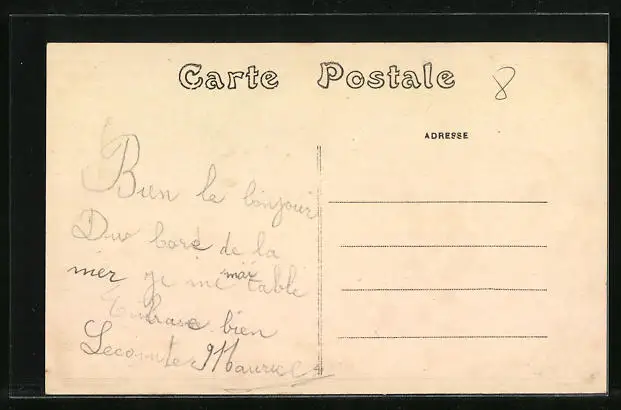 Carte Postale
8
ADRESSE
Bien le bonjour
Du boré de la
mer je me mai table
Embrase bien
Lecomte Maurice